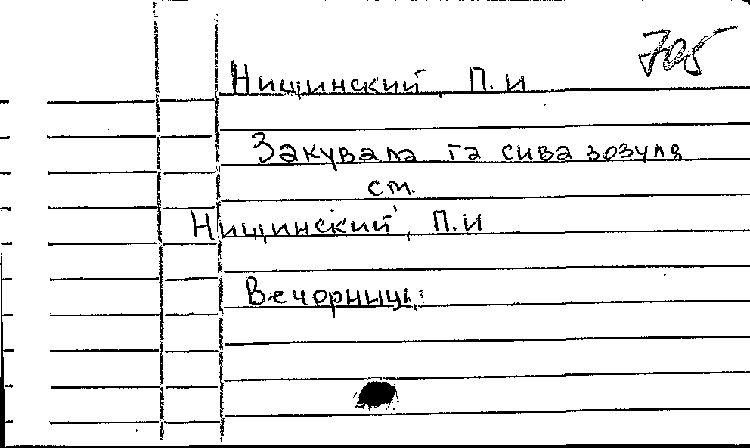 705
Нищинский, П.И
Закувала та сива зозуля
см.
Нищинский, П.И
Вечорницi